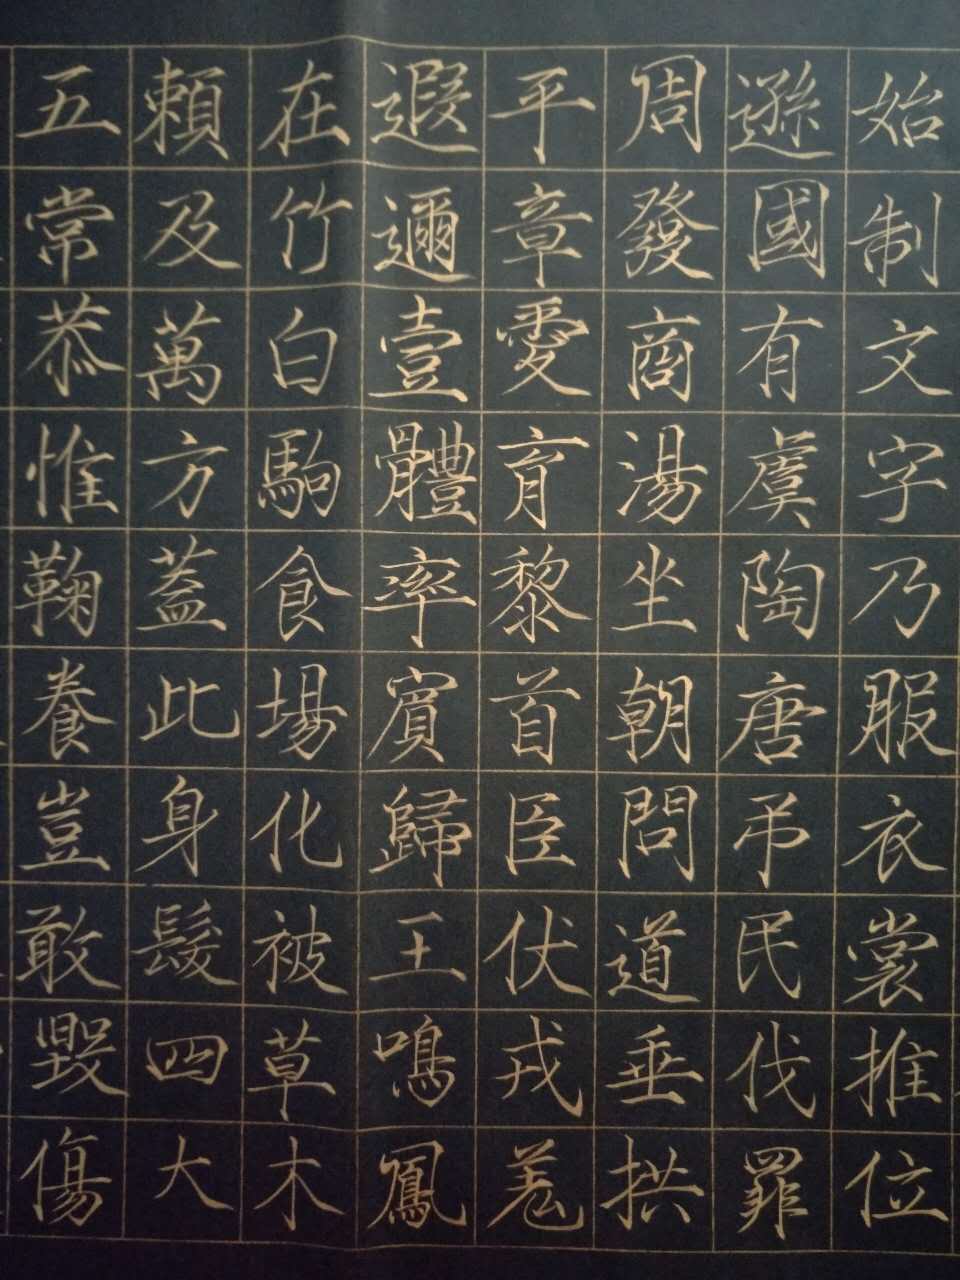 始制文字乃服衣裳推位
遜國有虞陶唐吊民伐罪
周發商湯坐朝問道垂拱
平章愛育黎首臣伏戎羌
遐邇壹體率賓歸王鳴鳳
在竹白駒食場化被草木
賴及萬方蓋此身髮四大
五常恭惟鞠養豈敢毀傷